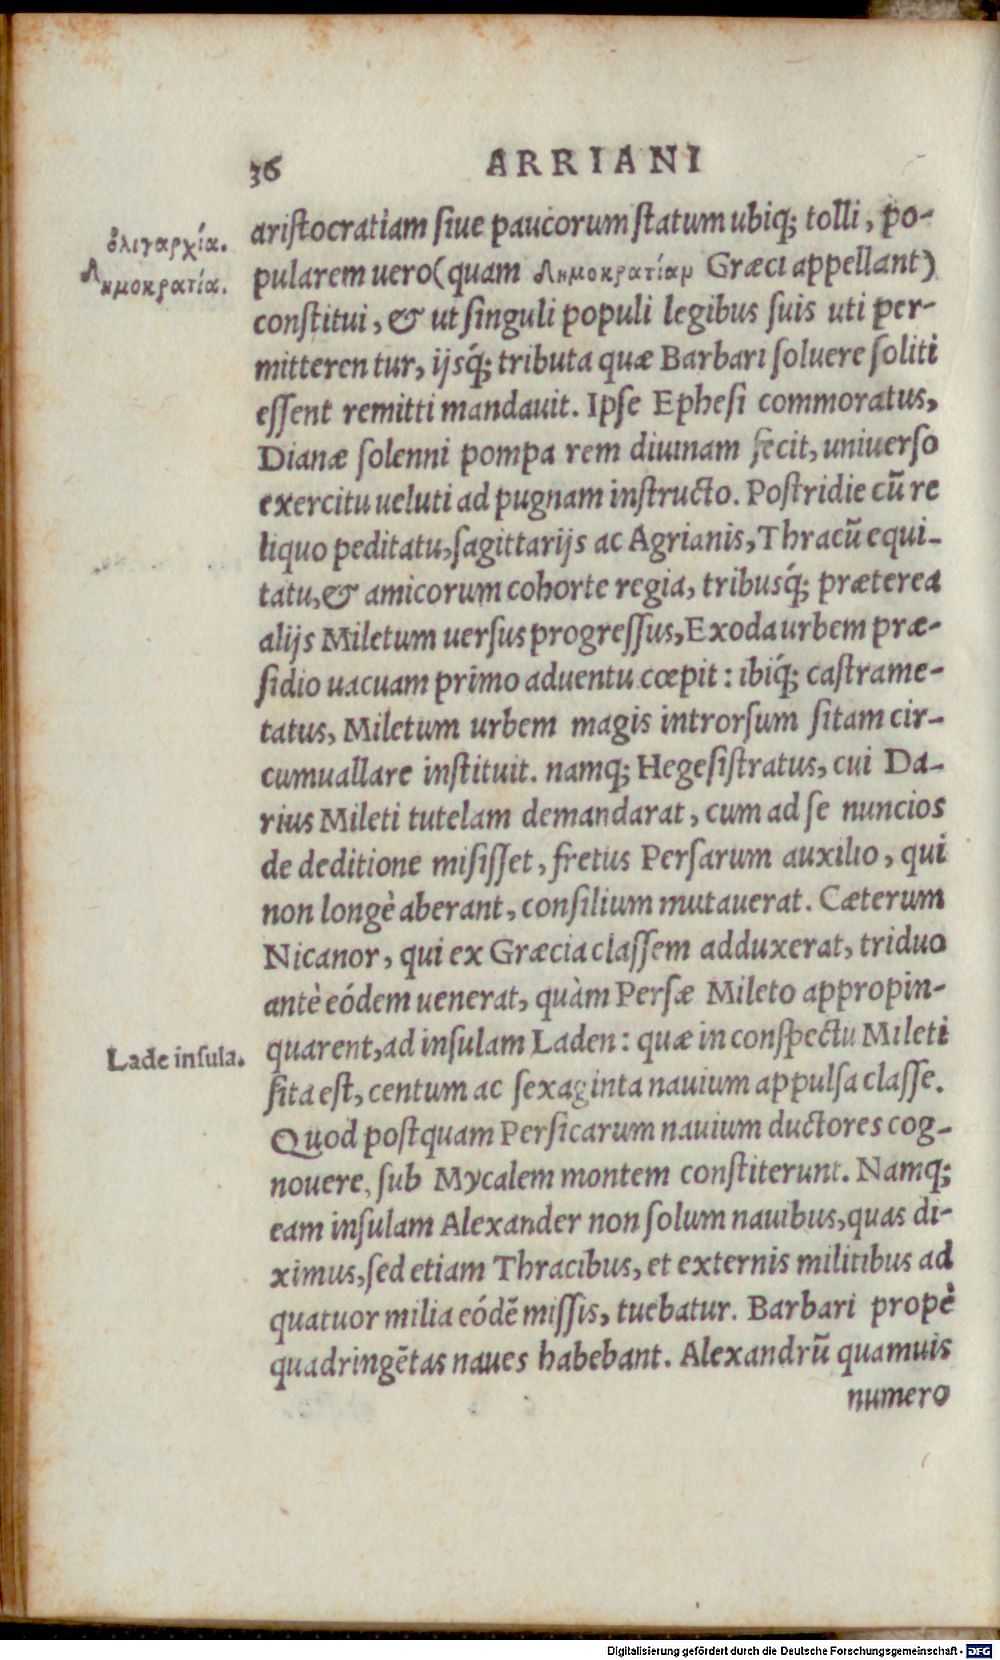 36 ARRIANI
aristocratiam siue paucorum statum ubiq; tolli, po-
ὀλιγαρχία.
pularem uero (quam δημοκρατίαμ Græci appellant)
Δημοκρατία.
constitui, & ut singuli populi legibus suis uti per-
mitterentur, ijsq́; tributa quæ Barbari soluere soliti
essent remitti mandauit. Ipse Ephesi commoratus,
Dianæ solenni pompa rem diuinam fecit, uniuerso
exercitu ueluti ad pugnam instructo. Postridie cũ re
liquo peditatu, sagittarijs ac Agrianis, Thracũ equi-
tatu, & amicorum cohorte regia, tribusq́; præterea
alijs Miletum uersus progressus, Exoda urbem præ-
sidio uacuam primo aduentu cœpit: ibiq́; castrame-
tatus, Miletum urbem magis introrsum sitam cir-
cumuallare instituit. namq; Hegesistratus, cui Da-
rius Mileti tutelam demandarat, cum ad se nuncios
de deditione misisset, fretus Persarum auxilio, qui
non longè aberant, consilium mutauerat. Cæterum
Nicanor, qui ex Græcia classem adduxerat, triduo
antè eódem uenerat, quàm Persæ Mileto appropin-
quarent, ad insulam Laden: quæ in conspectu Mileti
Lade insula.
sita est, centum ac sexaginta nauium appulsa classe.
Quod postquam Persicarum nauium ductores cog-
nouere, sub Mycalem montem constiterunt. Namq;
eam insulam Alexander non solum nauibus, quas di-
ximus, sed etiam Thracibus, et externis militibus ad
quatuor milia eódẽ missis, tuebatur. Barbari propè
quadringẽtas naues habebant. Alexandrũ quamuis
numero
Digitalisierung gefördert durch die Deutsche Forschungsgemeinschaft - DFG